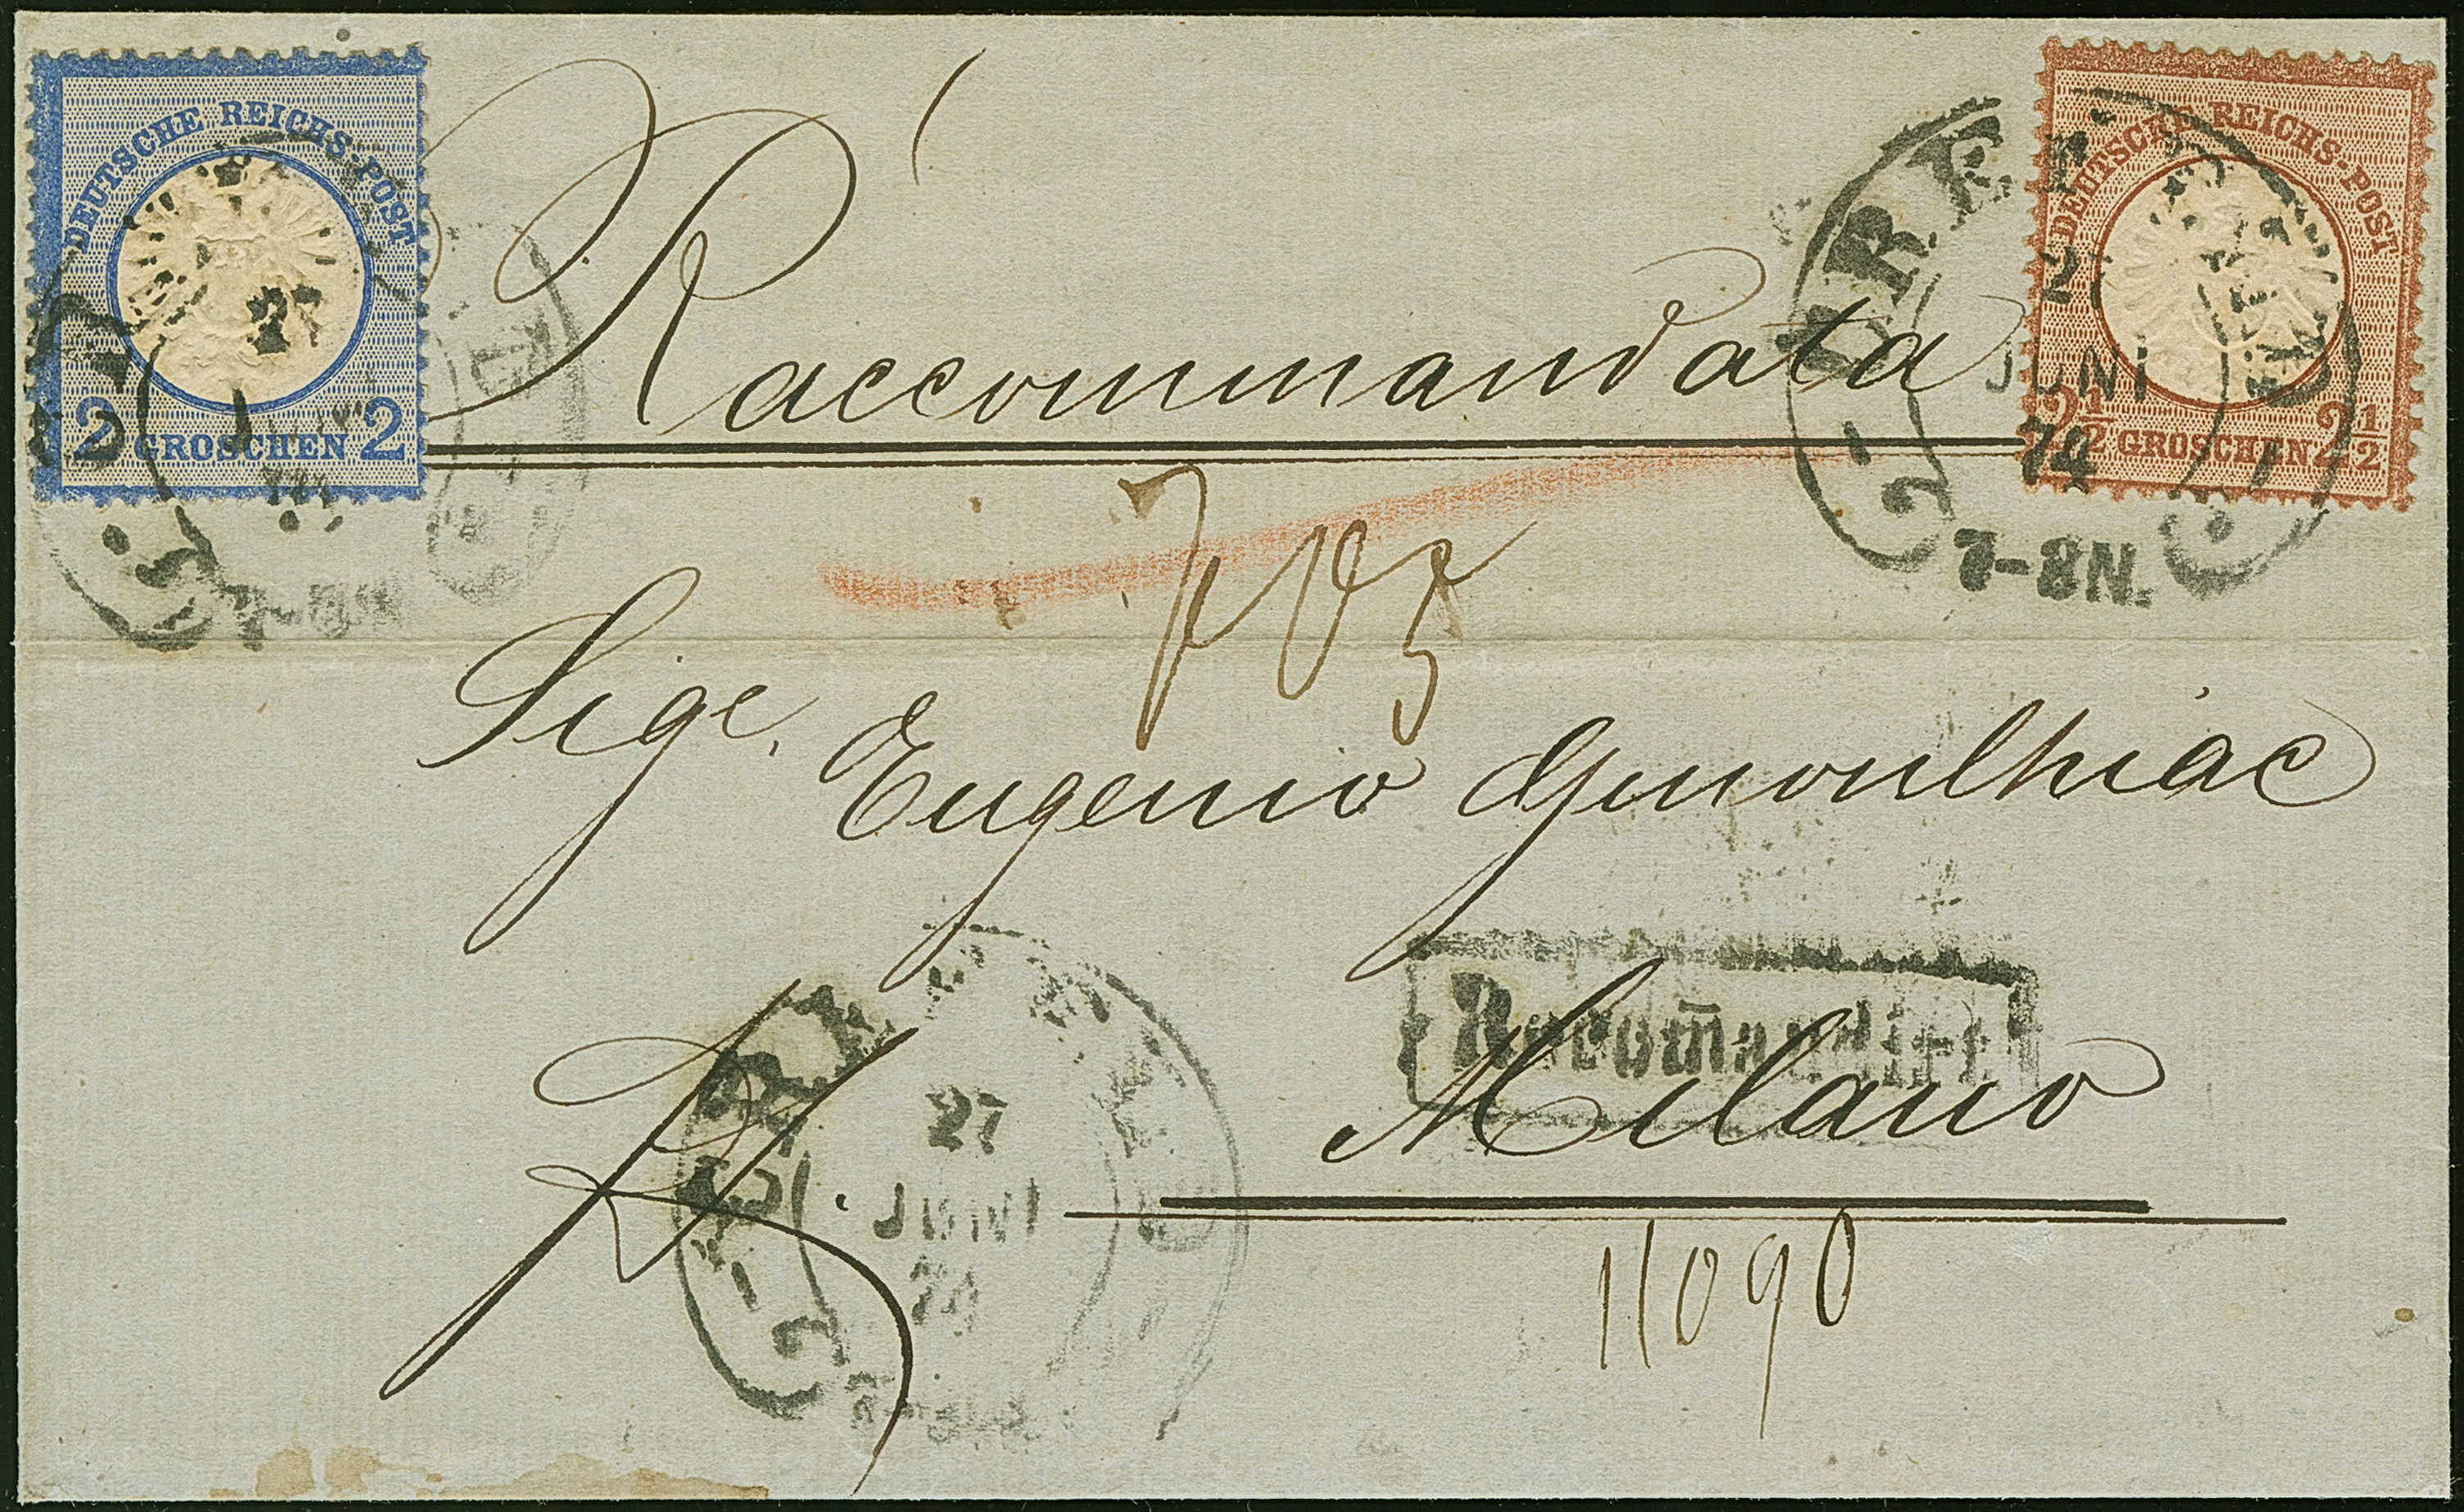 DEUTSCHE REICHS-POST
2 GROSCHEN 2
27
Raccommandata
DEUTSCHE REICHS-POST
2½ GROSCHEN 2½
JUNI
74
7-8N.
703
Sige. Eugenio Gmoulhiac
Recom̄andirt
Milano
27
JUNI
74
11090